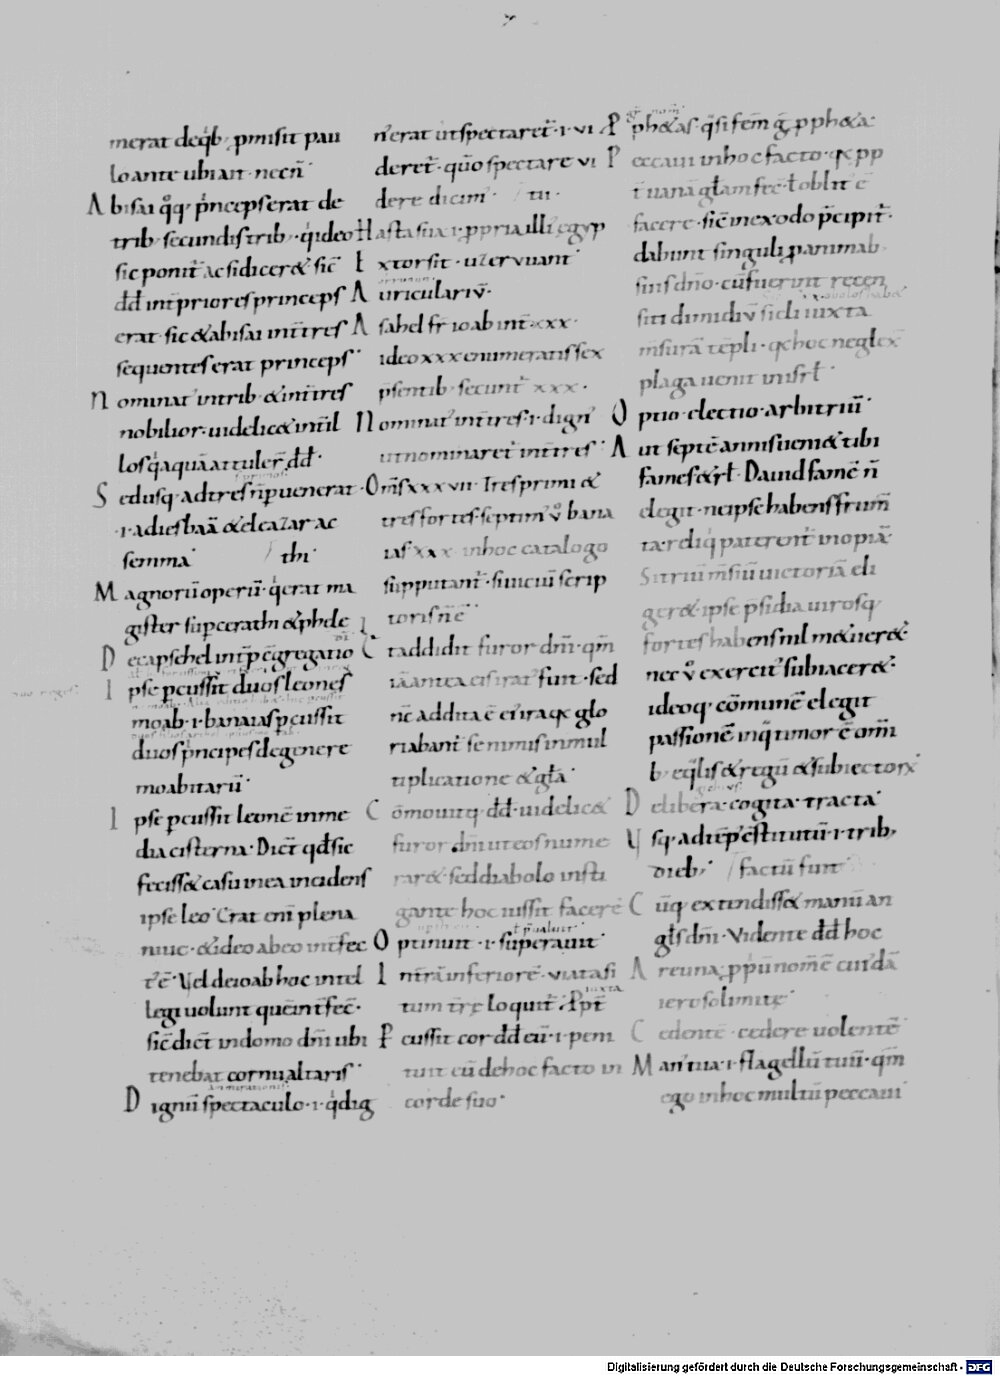 merat deq̄b; p̄misit pau
lo ante ubi aiт· necn̄·
Abisai q̊q; p̄nceps erat de
trib; secundis trib;· q̄ ideo
sic ponit̄ ac si dicer& sic̄
d̄d̄ int̄ priores princeps
erat· sic & abisai int̄ tres
sequentes erat princeps·
Nominat' in trib; & int̄ tres
nobilior· uidelic& int̄ il
los q̄ aquā attuler̄ d̄d̄·
Sed usq; ad tres n̄ puenerat·
·i· ad iesbaā & eleazar ac
semma' thi·
Magnorū operū· q̄ erat ma
gister sup cerathi & phele
De capsehel int̄p̄ c̄gregatio
Ipse pcussit duos leones
moab· ·i· banaias pcussit
duos p̄ncipes de genere
moabitarū·
Ipse pcussit leonē in me
dia cisterna· Dict̄ qđ sic
feciss& casu in ea incidens
ipse leo· Erat eni plena
niue· & ideo ab eo int̄fec
t' ē· Vel de ioab hoc intel
legi uolunt quē int̄fec̄·
sic̄ dict̄ in domo dn̄i ubi
tenebat cornu altaris·
Dignū spectaculo· ·i· q̄ dig
n' erat ut spectaret̄· ·i· vi
deret̄· quo spectare vi
dere dicim'· tii·
Hasta sua ·i· ppria illi egyp
Extorsit· uzer uuant
Auriculariū·
Asahel fr̄ ioab int̄ xxx·
ideo xxx enumeratis sex
p̄sentib; secunt̄ xxx·
Nominat' int̄ tres ·i· dign'
ut nominaret̄ int̄ tres·
Om̄s xxxvii· Tres primi &
tres fortes septim' v̊ bana
ias xxx· in hoc catalogo
supputant̄· siui cuī scrip
toris n̄ ē·
Et addidit furor dn̄i· qm̄
iā antea eis irat' fuit· sed
nc̄ addita ē ei' ira qa glo
riabant̄ se nimis in mul
tiplicatione & gl̄a·
Cōmouitq; d̄d̄· uidelic&
furor dn̄i ut eos nume
rar& sed diabolo insti
gante hoc iussit facere
Optinuit· ·i· superauit·
Intrā inferiorē· via tasi
tum tr̄e loquit̄· Ppt̄
Pcussit cor d̄d̄ eū· ·i· peni
tuit eū de hoc facto in
corde suo·
Ph&as· q̄si fem̄ ḡ pph&a·
Peccaui in hoc facto· qa pp
t' uanā gl̄am fec̄· ł oblit' ē
facere· sic̄ in exodo p̄cipit̄·
dabunt singuli p animab;
suis dn̄o· cū fuerint recen
siti dimidiū sicli iuxta
m̄surā tēpli· qa hoc neglex̄
plaga uenit in isrł·
Optio· electio· arbitriū·
Aut septē annis ueni& tibi
fames & rł· Dauid famē n̄
elegit· ne ipse habens frum̄
ta· reliq̄ paterent̄ inopiā·
Si triū m̄siū uictoriā eli
ger& ipse p̄sidia uirosq;
fortes habens nil m&uer&
nec v̊ exercit' subiacer&·
ideoq; cōmunē elegit
passionē inq̄ timor ē om̄i
b; eq̄lis & regū & subiectorx
Delibera· cogita· tracta·
Vsq; ad tēp̄ c̄stitutū· ·i· trib;
dieb;· factū fuit
Cūq; extendiss& manū an
gl̄s dn̄i· Vidente d̄d̄ hoc
Areuna· ppū nomē cuidā
ierosolimitę·
Cedentē· cedere uolentē
Man' tua· ·i· flagellū tuū· qm̄
ego in hoc multū peccaui
Digitalisierung gefördert durch die Deutsche Forschungsgemeinschaft - DFG